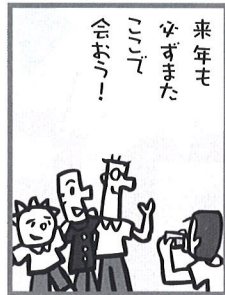 来年も
必ずまた
ここで
会おう！